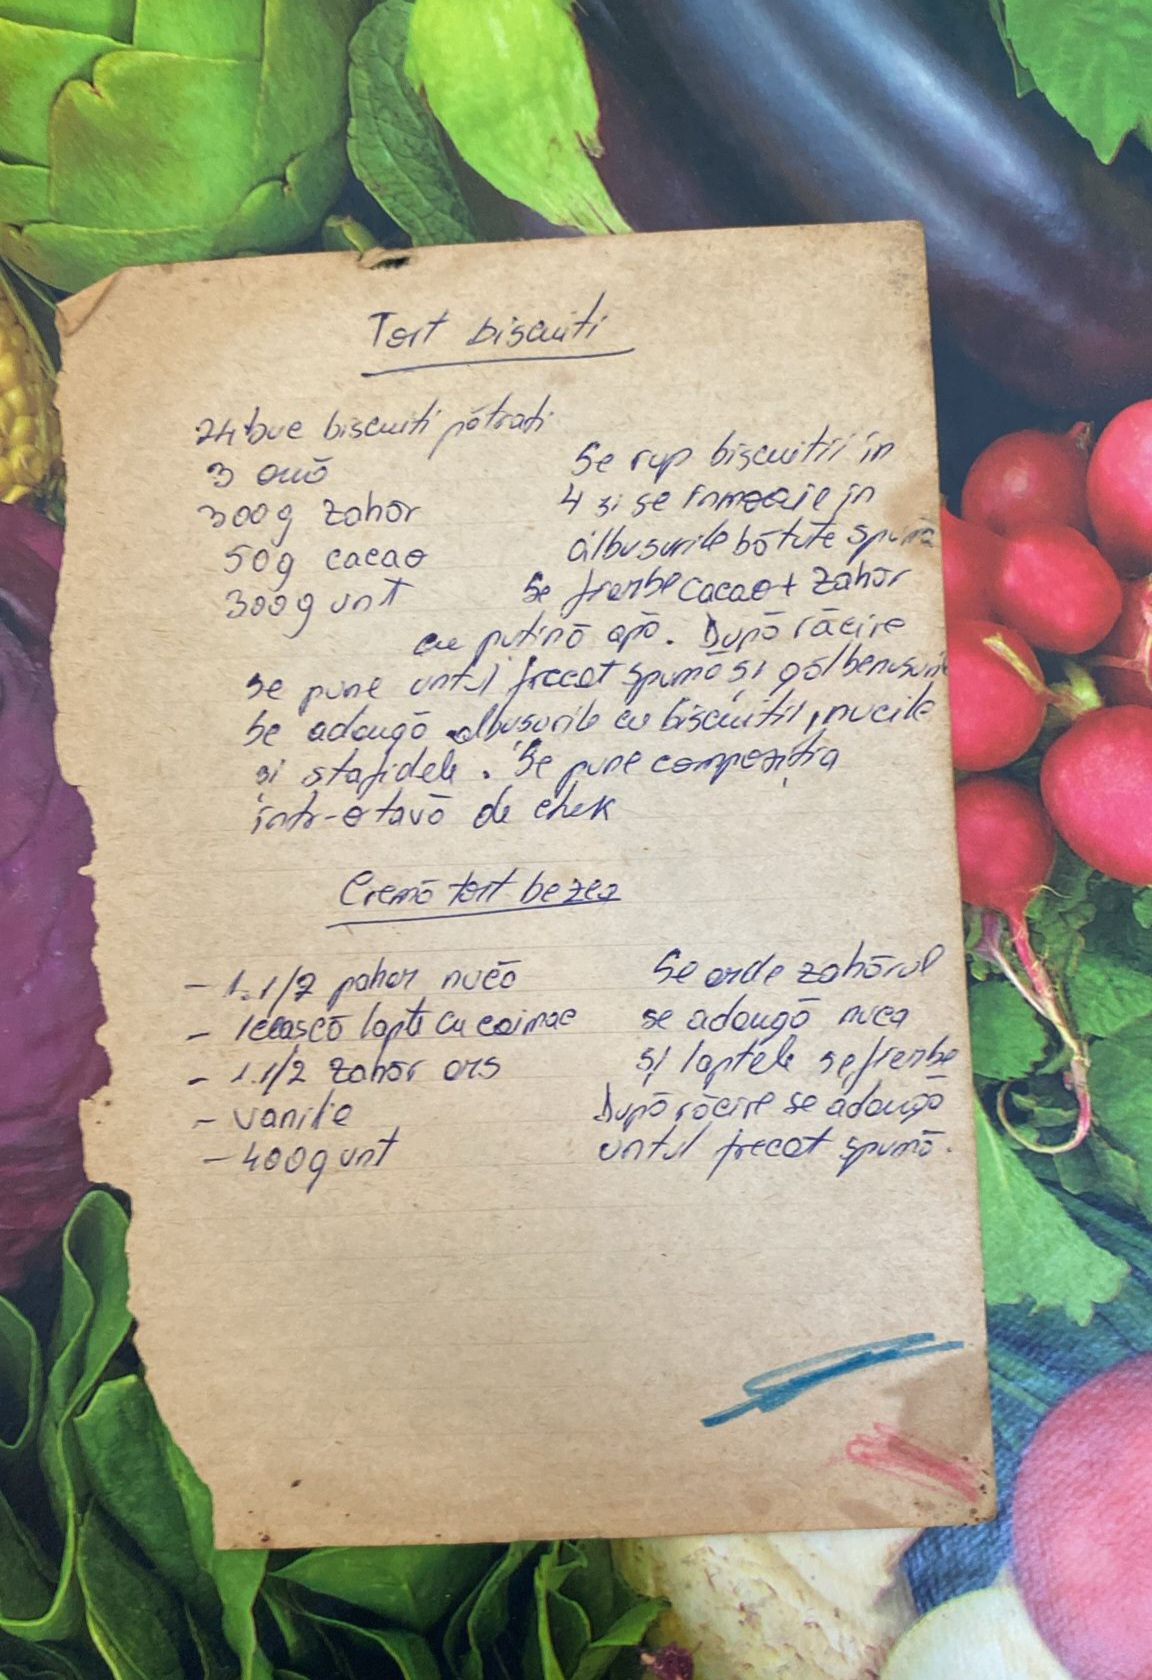 Tort biscuiti
24 buc biscuiti pătrați
3 ouă
300g zahăr
50g cacao
300g unt
Se rup biscuitii în
4 și se înmoaie în
albusurile bătute spumă
Se fierbe cacao+ zahăr
cu puțină apă. După răcire
se pune untul frecat spumă și gălbenusurile
Se adaugă albusurile cu biscuitii, nucile
și stafidele. Se pune compoziția
într-o tavă de chek
Cremă tort bezea
- 1.1/2 pahar nucă
- 1 ceașcă lapte cu caimac
- 1.1/2 zahăr ars
- vanilie
- 400g unt
Se arde zahărul
se adaugă nuca
și laptele se fierbe
După răcire se adaugă
untul frecat spumă.